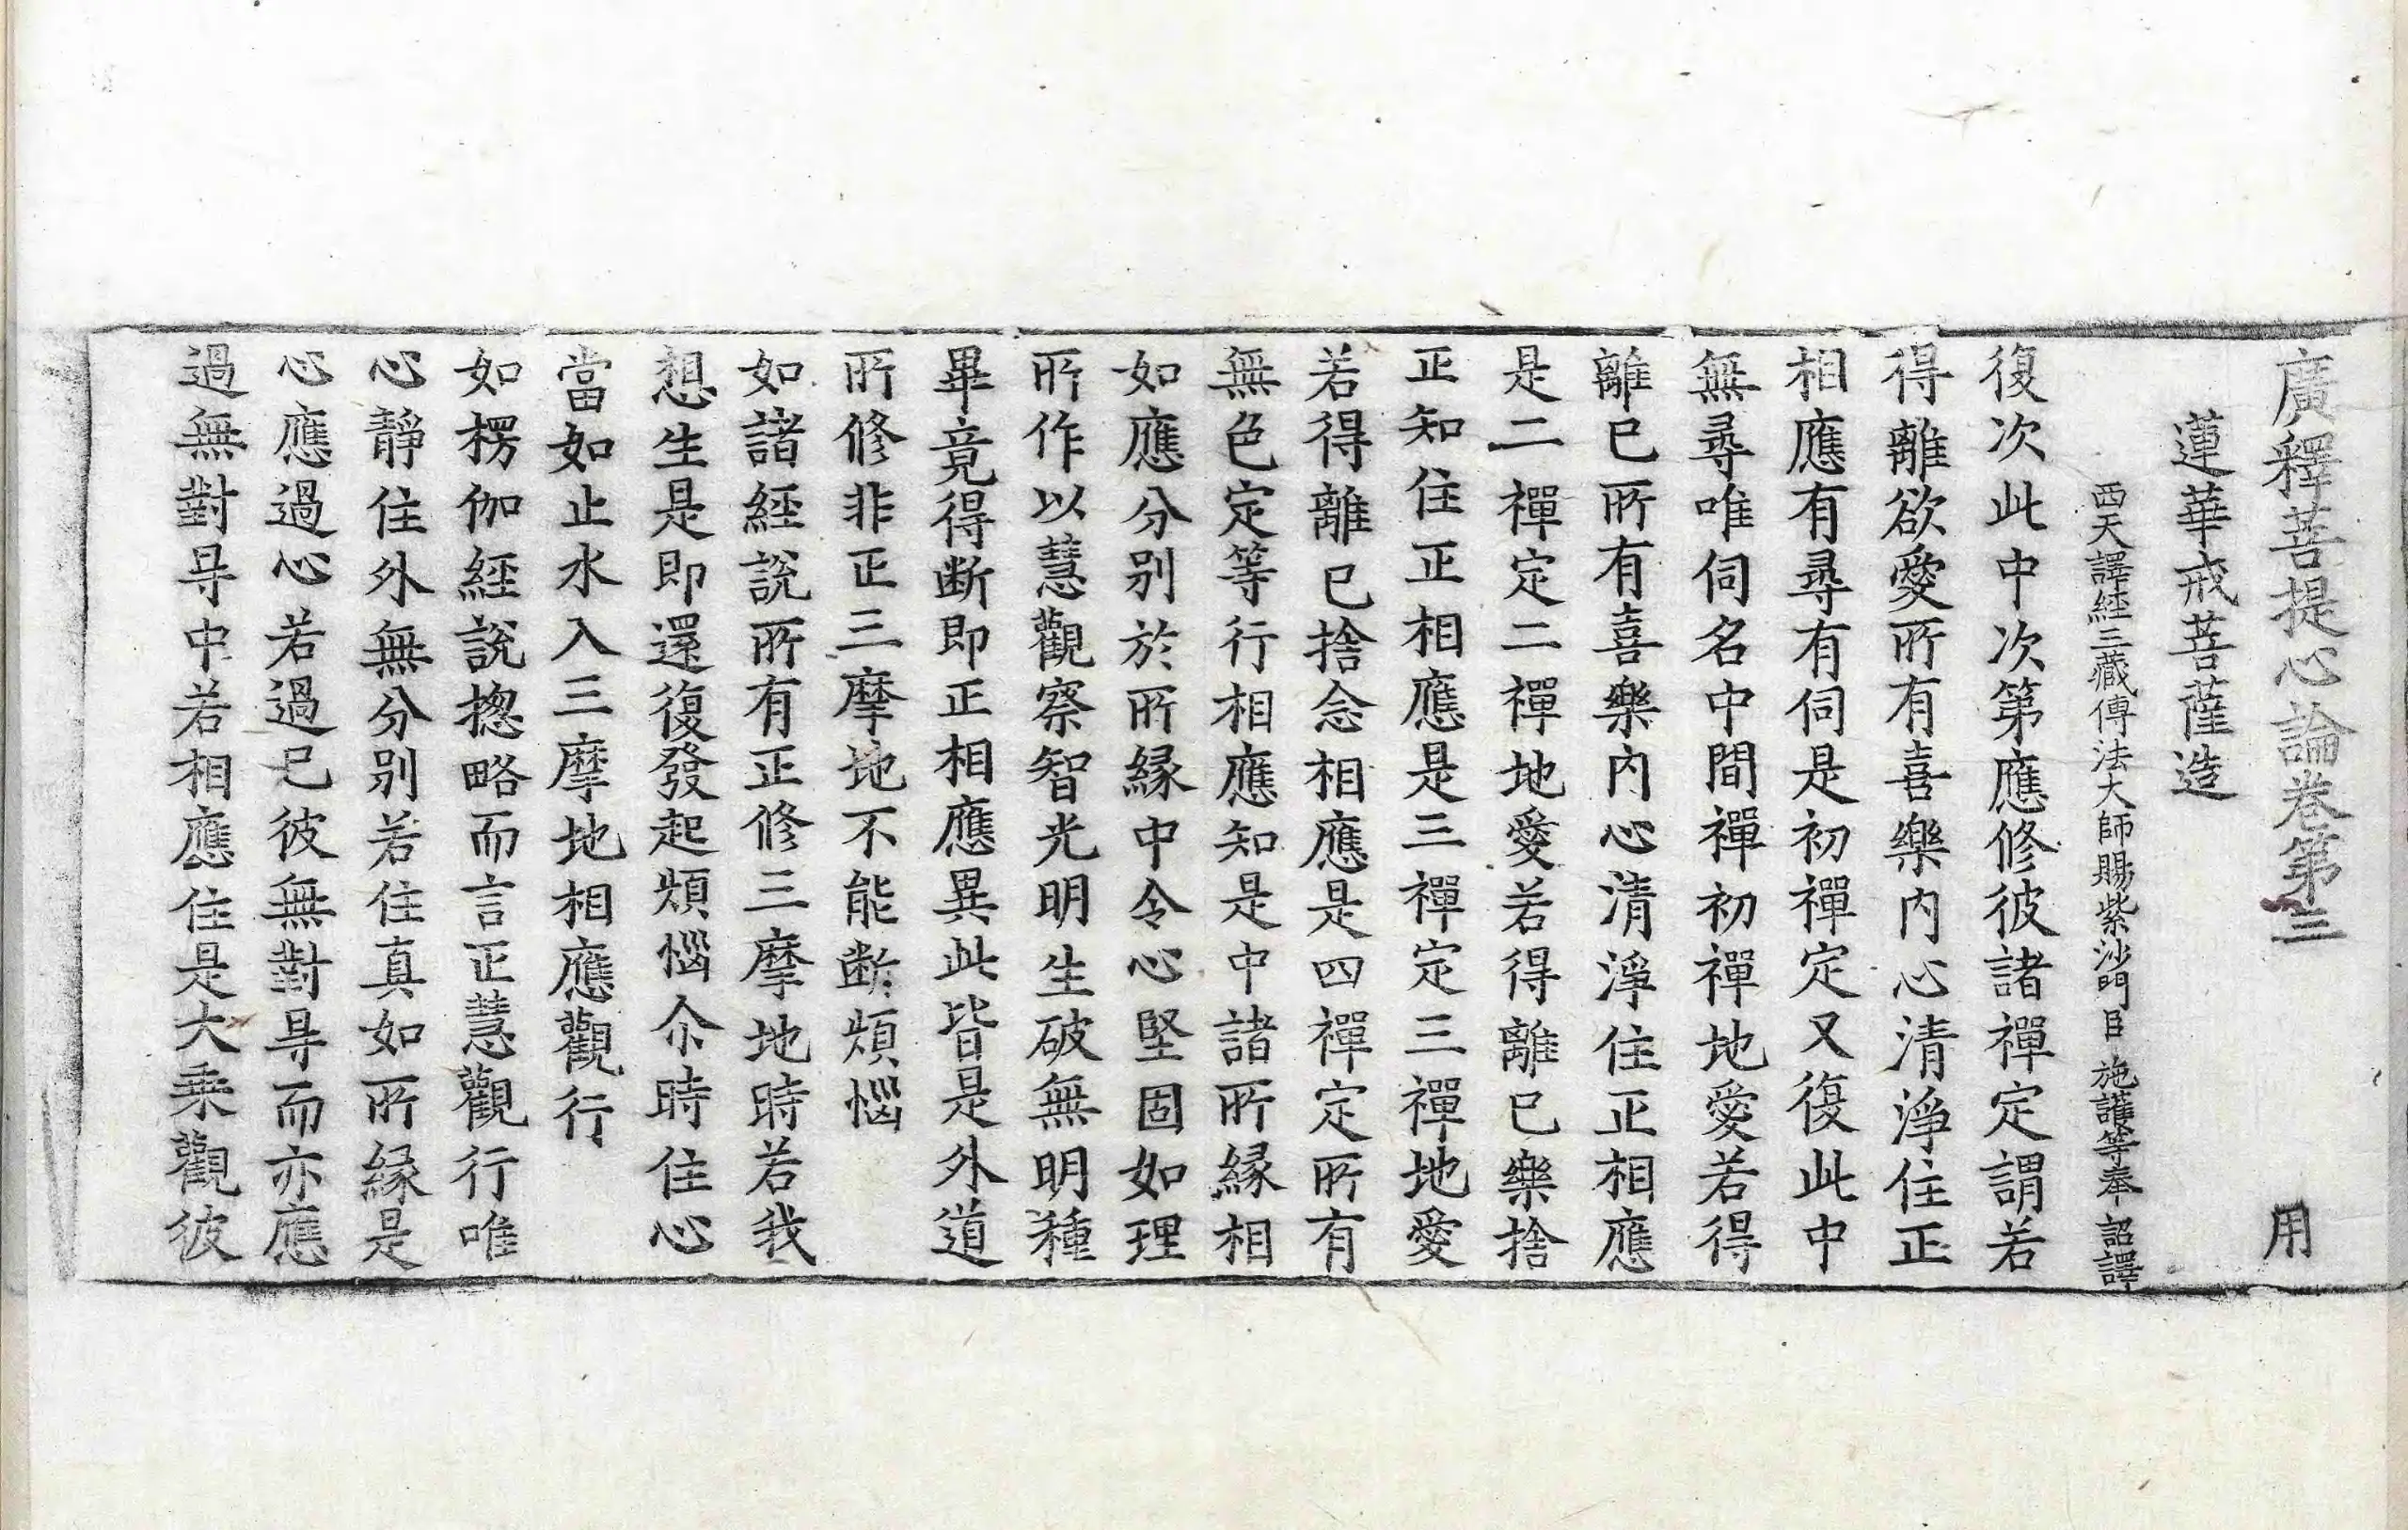 廣釋菩提心論卷第三　用
蓮華戒菩薩造
西天譯經三藏傳法大師賜紫沙門臣 施護等奉 詔譯
復次此中次第應修彼諸禪定謂若
得離欲愛所有喜樂内心清淨住正
相應有尋有伺是初禪定又復此中
無尋唯伺名中間禪初禪地愛若得
離已所有喜樂内心清淨住正相應
是二禪定二禪地愛若得離已樂捨
正知住正相應是三禪定三禪地愛
若得離已捨念相應是四禪定所有
無色定等行相應知是中諸所緣相
如應分别於所緣中令心堅固如理
所作以慧觀察智光明生破無明種
畢竟得斷即正相應異此皆是外道
所修非正三摩地不能斷煩惱
如諸經說所有正修三摩地時若我
想生是即還復發起煩惱尒時住心
當如止水入三摩地相應觀行
如楞伽經說揔略而言正慧觀行唯
心靜住外無分别若住真如所緣是
心應過心若過已彼無對㝵而亦應
過無對㝵中若相應住是大乘觀彼